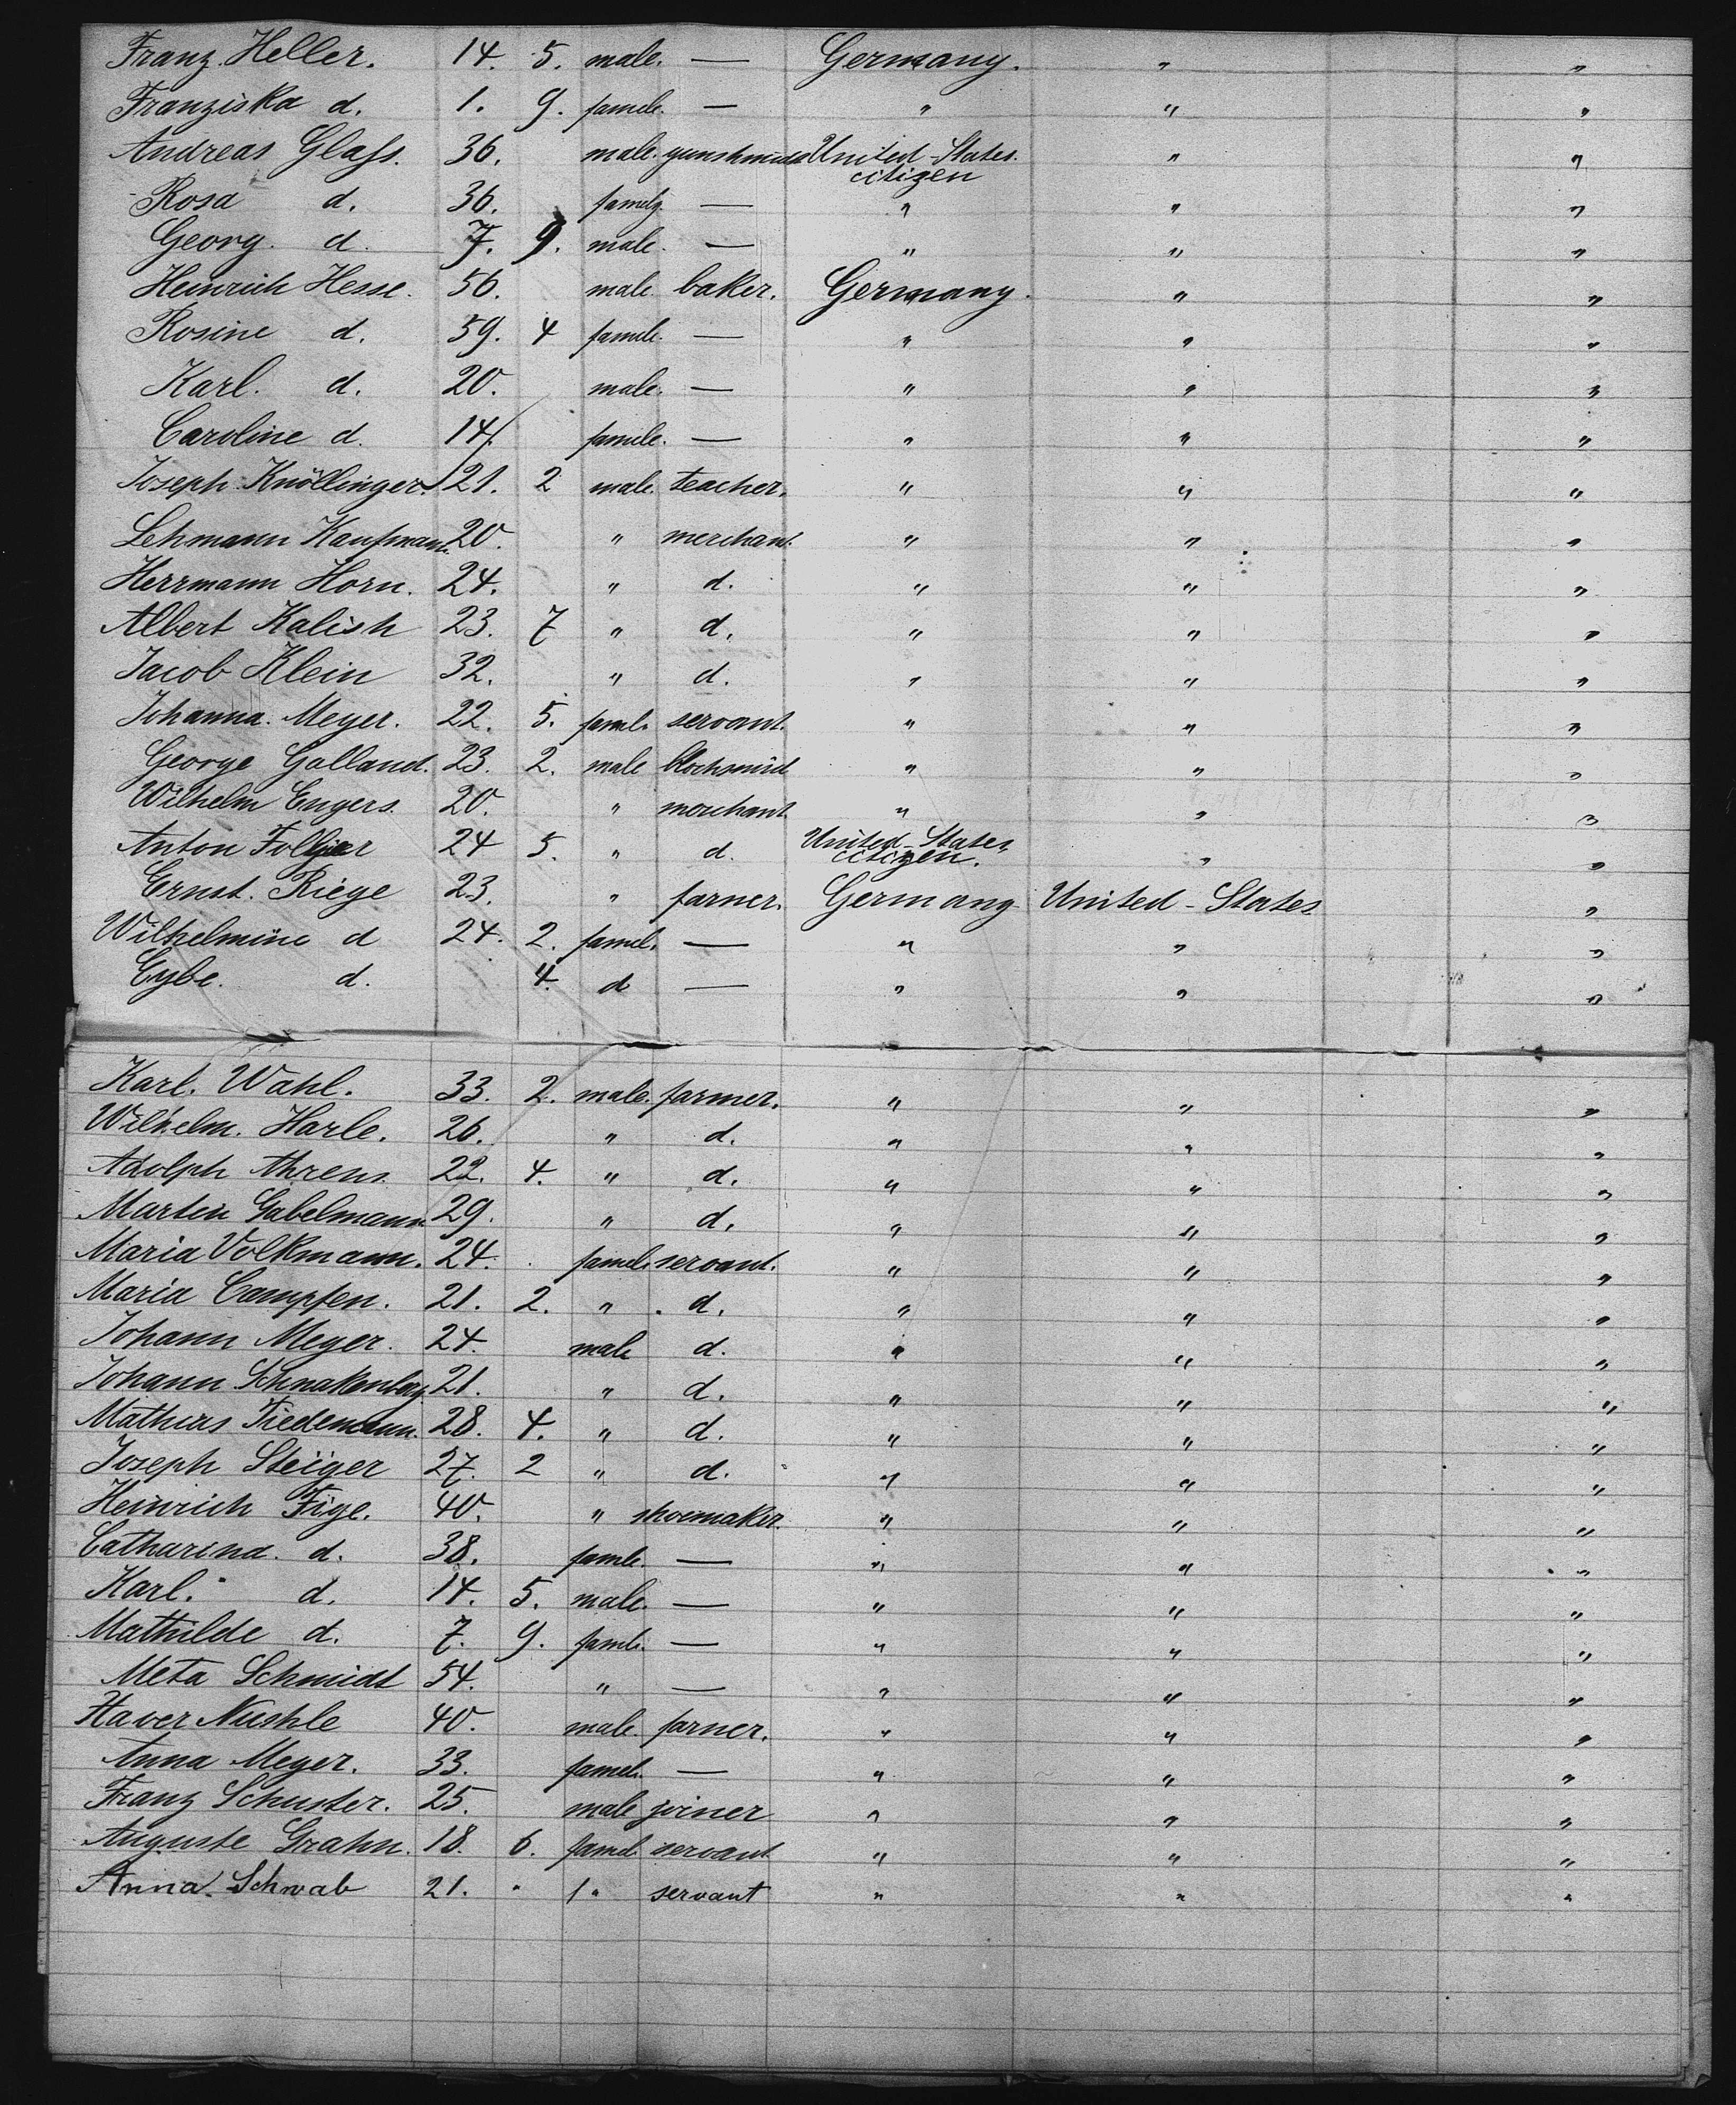 Franz Heller. 14. 5. male. — Germany. " "
Franziska d. 1. 9. famele. — " " "
Andreas Glass. 36. male. gunshmidt United-States citizen " "
Rosa d. 36. famely. — " " "
Georg. d. 7. 9. male. — " " "
Heinrich Hesse. 56. male. baker. Germany. " "
Rosine d. 59. 4 famele. — " " "
Karl. d. 20. male. — " " "
Caroline d. 14. famele. — " " "
Joseph Knöllinger. 21. 2 male. teacher. " " "
Lehmann Kaufmann. 20. " merchant. " " "
Herrmann Horn. 24. " d. " " "
Albert Kalish 23. 7 " d. " " "
Jacob Klein 32. " d. " " "
Johanna. Meyer. 22. 5. famel. servant. " " "
George Galland. 23. 2. male blochsmid " " "
Wilhelm Engers. 20. " merchant. " " "
Anton 24 5. " d. United-States citizen. " "
Ernst. Riege 23. " farner. Germany United-States "
Wilhelmine d 24. 2. famel. — " " "
Cybe. d. 4. d — " " "
Karl. Wahl. 33. 2. male. farmer. " " "
Wilhelm. Harle. 26. " d. " " "
Adolph Ahrens. 22. 4. " d. " " "
Martin Gabelmann 29. " d. " " "
Maria Volkmann. 24. famel. servant. " " "
Maria Campfen. 21. 2. " d. " " "
Johann Meyer. 24. male d. " " "
Johann Schnakenberg. 21. " d. " " "
Mathias Tiedemann. 28. 4. " d. " " "
Joseph Steiger 27. 2 " d. " " "
Heinrich Fige. 40. " shoemaker. " " "
Catharina. d. 38. famle. — " " "
Karl. d. 14. 5. male. — " " "
Mathilde d. 7. 9. famle. — " " "
Meta Schmidt 54. " — " " "
Xaver Nushle 40. male. farner. " " "
Anna Meyer. 33. famel. — " " "
Franz Schuster. 25. male joiner " " "
Auguste Grahn. 18. 6. famel. servant " " "
Anna. Schwab 21. " servant " " "